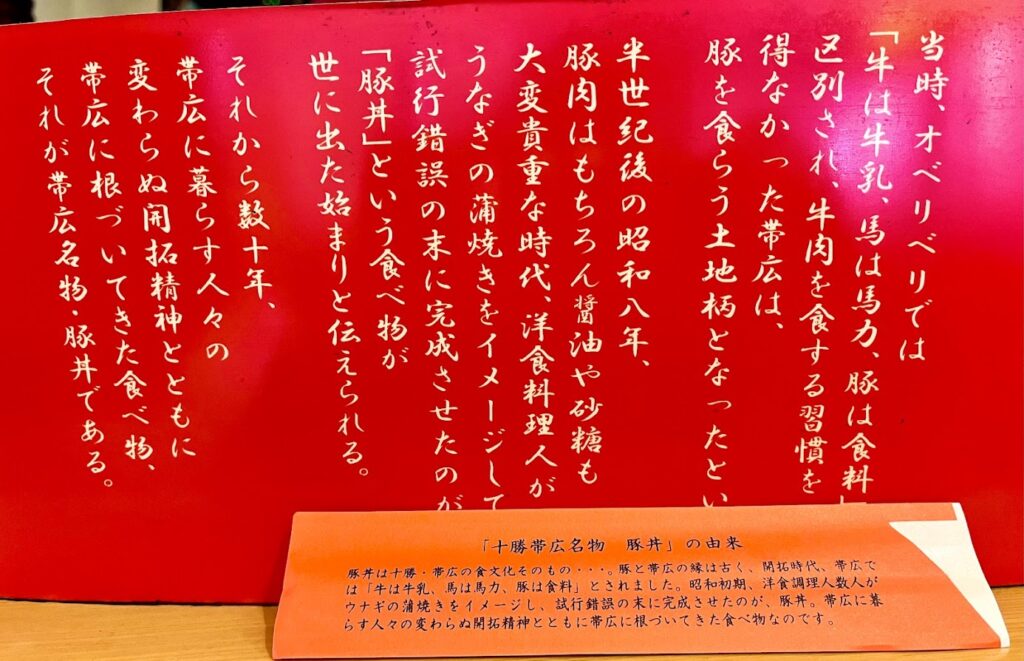 当時、オベリベリでは
「牛は牛乳、馬は馬力、豚は食料」
区別され、牛肉を食する習慣を
得なかった帯広は、
豚を食らう土地柄となったとい
半世紀後の昭和八年、
豚肉はもちろん醤油や砂糖も
大変貴重な時代、洋食料理人が
うなぎの蒲焼きをイメージして
試行錯誤の末に完成させたのが
「豚丼」という食べ物が
世に出た始まりと伝えられる。
それから数十年、
帯広に暮らす人々の
変わらぬ開拓精神とともに
帯広に根づいてきた食べ物、
それが帯広名物・豚丼である。
「十勝帯広名物　豚丼」の由来
豚丼は十勝・帯広の食文化そのもの・・・。豚と帯広の縁は古く、開拓時代、帯広で
は「牛は牛乳、馬は馬力、豚は食料」とされました。昭和初期、洋食調理人数人が
ウナギの蒲焼きをイメージし、試行錯誤の末に完成させたのが、豚丼。帯広に暮
らす人々の変わらぬ開拓精神とともに帯広に根づいてきた食べ物なのです。